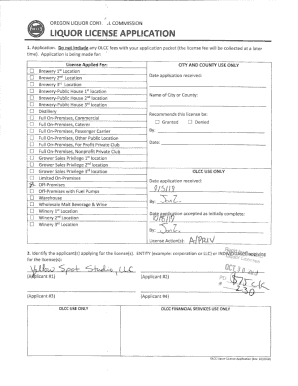 OREGON LIQUOR CONT L COMMISSION
LIQUOR LICENSE APPLICATION
1. Application. Do not include any OLCC fees with your application packet (the license fee will be collected at a later
time). Application is being made for:
License Applied For:
Brewery 1st Location
Brewery 2nd Location
Brewery 3rd Location
Brewery-Public House 1st location
Brewery-Public House 2nd location
Brewery-Public House 3rd location
Distillery
Full On-Premises, Commercial
Full On-Premises, Caterer
Full On-Premises, Passenger Carrier
Full On-Premises, Other Public Location
Full On-Premises, For Profit Private Club
Full On-Premises, Nonprofit Private Club
Grower Sales Privilege 1st location
Grower Sales Privilege 2nd location
Grower Sales Privilege 3rd location
Limited On-Premises
Off-Premises
Off-Premises with Fuel Pumps
Warehouse
Wholesale Malt Beverage & Wine
Winery 1st Location
Winery 2nd Location
Winery 3rd Location
CITY AND COUNTY USE ONLY
Date application received:
Name of City or County:
Recommends this license be:
Granted Denied
By:
Date:
OLCC USE ONLY
Date application received:
By:
Date application accepted as initially complete:
By:
License Action(s):
2. Identify the applicant(s) applying for the license(s). ENTITY (example: corporation or LLC) or
for the license(s):
Yellow Spot Studio, LLC
(Applicant #1) (Applicant #2)
(Applicant #3) (Applicant #4)
OLCC USE ONLY OLCC FINANCIAL SERVICES USE ONLY